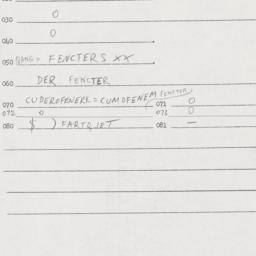 030 0
040 0
050 NAME= FENCTERS XX
060 DER FENCTER
FENCTER)
070 CUDEROFENERK = CUMOFENEM 071 0
072 0 073 0
080 $ ) FARTQJET 081 —